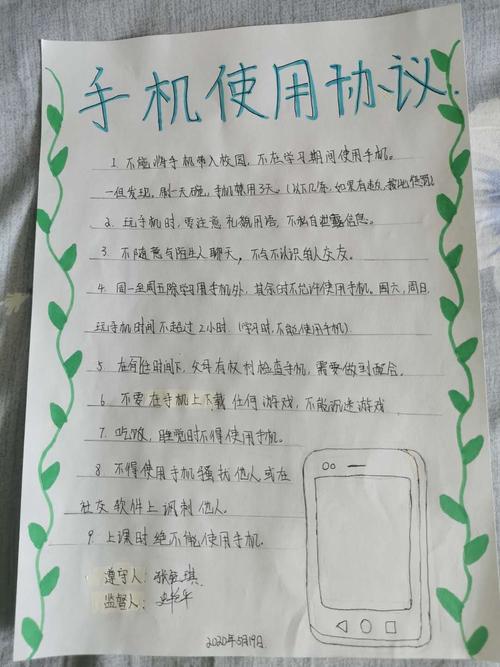 手机使用协议.
1. 不能将手机带入校园，不在学习期间使用手机。
一但发现，刷一天碗，手机禁用3天。(以下几条，如果有违反，按此惩罚)
2. 玩手机时，要注意礼貌用语，不私自泄露信息。
3. 不随意与陌生人聊天，不和不认识的人交友。
4. 周一至周五除学习用手机外，其余时不允许使用手机。周六，周日，
玩手机时间不超过2小时.(学习时,不能使用手机)
5. 在何任时间下，父母有权利检查手机，需要做到配合。
6 不要在手机上下载任何游戏，不能沉迷游戏.
7. 吃饭，睡觉时不得使用手机。
8 不得使用手机骚扰他人或在
社交软件上调制他人.
9. 上课时绝不能使用手机.
遵守人: 张 琪
监督人:
2020年5月19日.